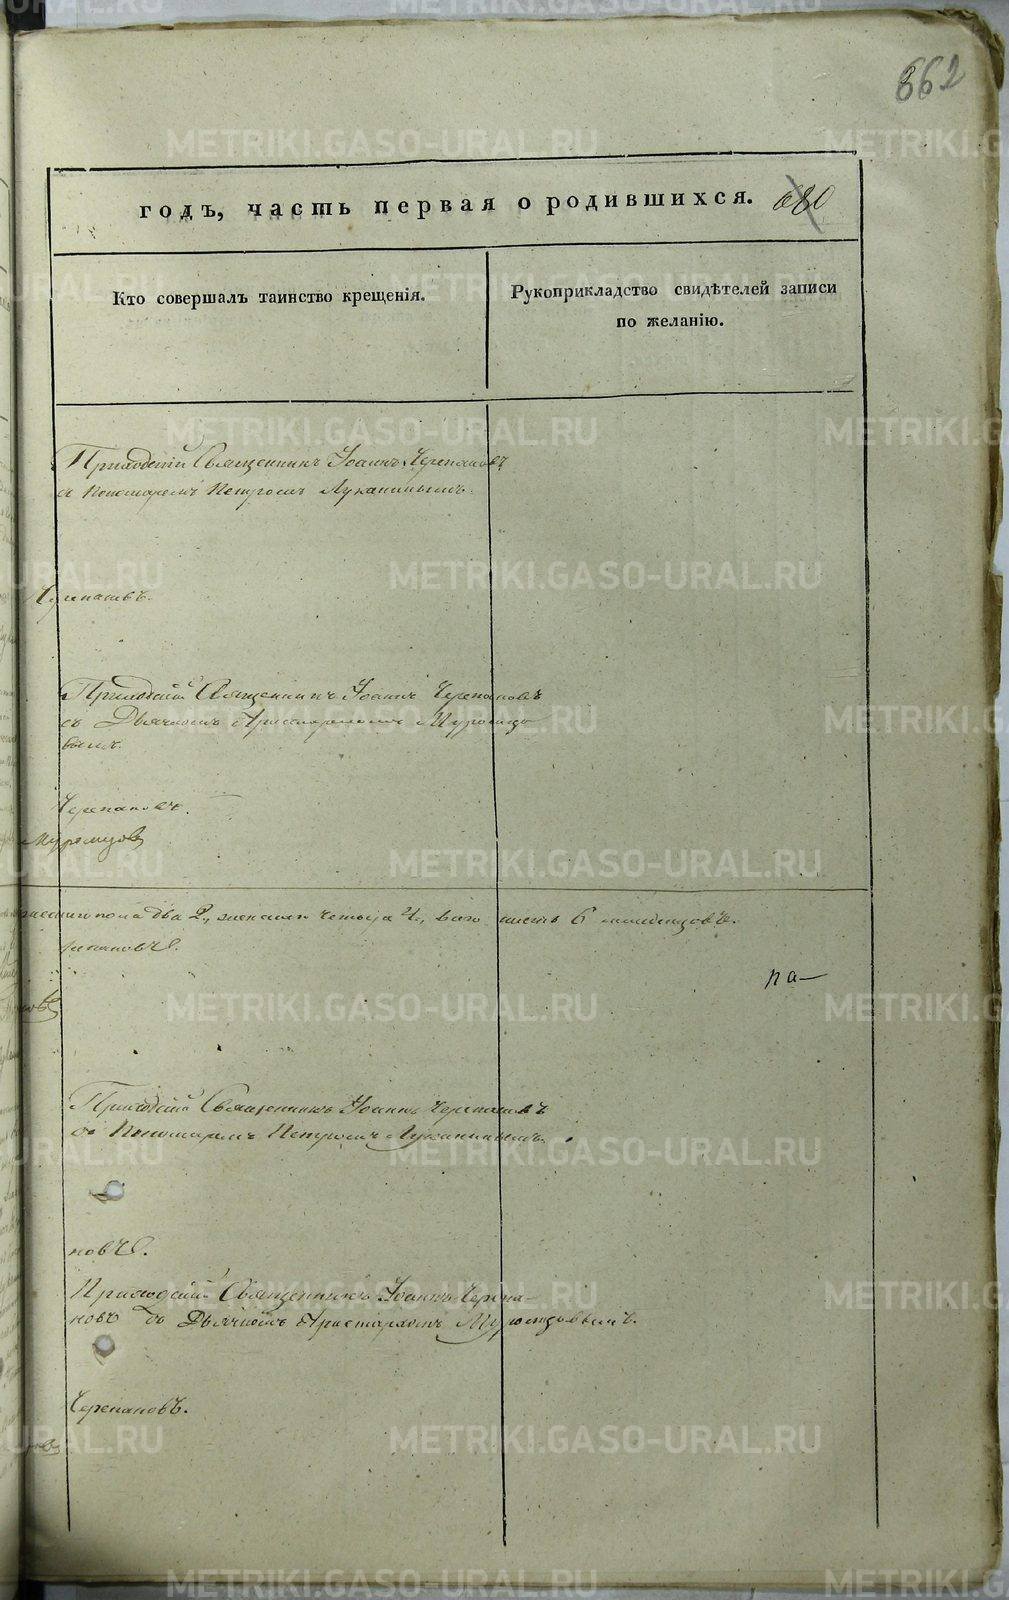 662
годъ, часть первая о родившихся. 680
Кто совершалъ таинство крещенія.
Рукоприкладство свидѣтелей записи
по желанію.
Приходскій Священникъ Іоаннъ Черепановъ
съ Пономаремъ Петромъ Луканинымъ.
Черепановъ.
Приходскій Священникъ Іоаннъ Черепановъ
съ Дьячкомъ Аристархомъ Муромцо
вымъ.
Черепановъ.
Муромцовъ
два 2, женскаго четыре 4, всего шесть 6 младенцовъ.
репановъ.
па—
Приходскій Священникъ Іоаннъ Черепановъ
съ Пономаремъ Петромъ Луканинымъ.
новъ.
Приходскій Священникъ Іоаннъ Черепа-
новъ съ Дьячкомъ Аристархомъ Муромцовымъ.
Черепановъ.
METRIKI.GASO-URAL.RU